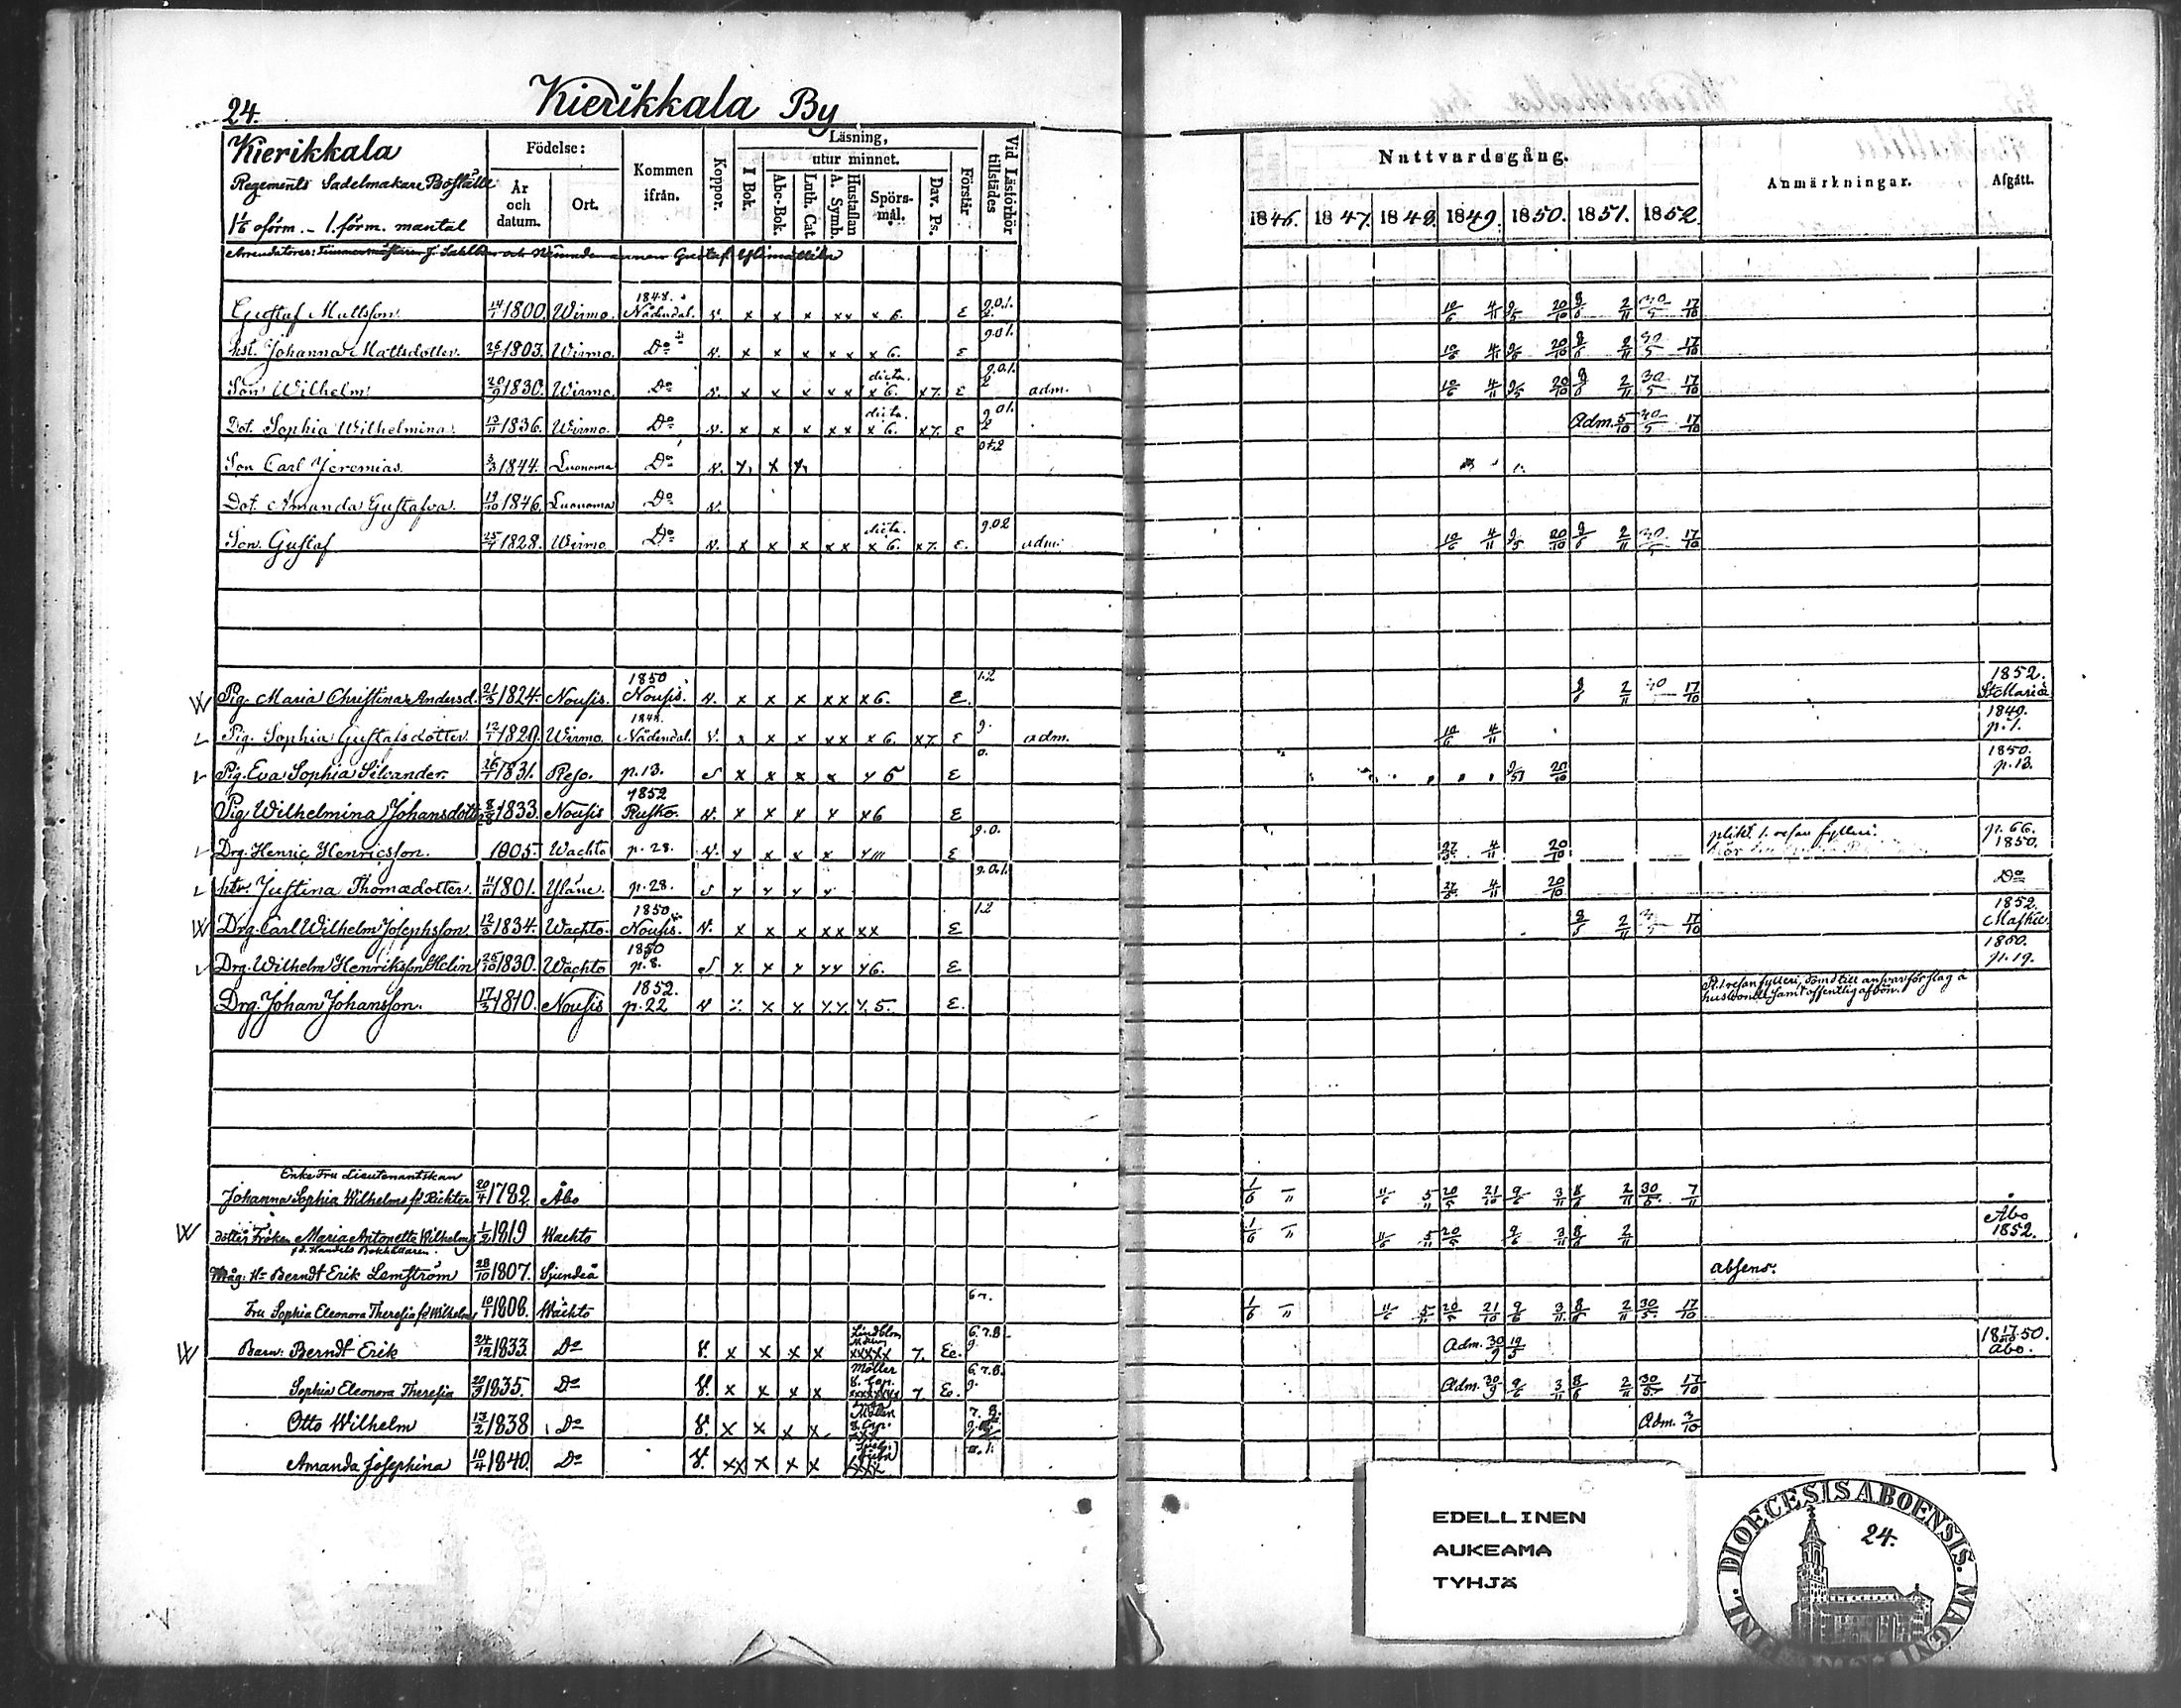 24.
Kierikkala By
Kierikkala
Regements Sadelmakare Boställe
1/6 oförm. - 1. förm. mantal
Födelse:
År och datum.
Ort.
Kommen ifrån.
Koppor.
Läsning,
utur minnet.
I Bok.
Abc-Bok.
Luth. Cat.
Hustaflan A. Symb.
Spörs-mål.
Dav. Ps.
Förstår
Vid Läsförhör tillstädes
Nattvardsgång.
1846. 1847. 1848. 1849. 1850. 1851. 1852.
Anmärkningar.
Afgått.
Gustaf Mattsson. 14/1 1800. Wirmo. 1848. Nådendal. v. x x x xx x 6. E 9.0.1.2. 10/6 4/11 9/5 20/10 8/6 2/11 30/5 17/10
hst. Johanna Mattsdotter. 26/1 1803. Wirmo. Do v. x x x x x x 6. E 9.01. 10/6 4/11 9/5 20/10 8/6 2/11 30/5 17/10
Son Wilhelm 20/9 1830. Wirmo. Do v. x x x x x dicta. x 6. x7. E 9.0.1.2 adm. 10/6 4/11 9/5 20/10 8/6 2/11 30/5 17/10
Dot. Sophia Wilhelmina. 13/11 1836. Wirmo. Do v. x x x xx dicta. x 6. x7. E 9.01.2 Adm. 5/10 30/5 17/10
Son Carl Jeremias. 3/3 1844. Luonoma Do v.
Dot. Amanda Gustafva. 19/10 1846. Luonoma Do v.
Son Gustaf 25/4 1828. Wirmo Do v. x x x xx dicta. x 6. x7. E. 9.02 adm. 10/6 4/11 9/5 20/10 8/6 2/11 30/5 17/10
Pig. Maria Christina Andersd. 21/5 1824. Nousis. 1850 Nousis. v. x x x xx x6. E. 1.2 8/6 2/11 30 17/10 1852. St Mariæ
Pig. Sophia Gustafsdotter. 12/1 1829. Wirmo. Nådendal. v. x x x xx x 6. x7. E 9. adm. 10/6 4/11 1849. p. 1.
Pig. Eva Sophia Silvander. 26/1 1831. Reso. p. 13. x x x x x 5 E 0. 9/5 20/10 1850. p. 13.
Pig Wilhelmina Johansdott 1833. Nousis 1852 Rusko. v. x x x x x6 E
Drg. Henric Henricsson. 1805. Wachto p. 28. v. x x x x E 9.0. 27/5 4/11 20/10 plikt 1. resan fylleri. p. 66. 1850.
hst. Justina Thomædotter. 11/11 1801. Yläne. p. 28. x x x x 9.0.1. 27/5 4/11 20/10 Do
Drg. Carl Wilhelm Josephsson. 12/5 1834. Wachto. 1850. Nousis. v. x x x xx xx E 1.2 2/11 17/10 1852. Masku.
Drg. Wilhelm Henriksson Helin 25/10 1830. Wachto 1850 p. 8. x x x xx x6. E 1850. p. 19.
Drg. Johan Johansson. 17/3 1810. Nousis 1852. p. 22 v x x x x x x 5. E. Pl. 1. resan fylleri, dömd till answar för slag å husbonde samt offentlig afbön.
Enke Fru Lieutenantskan
Johanna Sophia Wilhelms fd Richter 20/4 1782. Åbo 1/6 11/6 5/11 20/5 21/10 9/6 3/11 8/6 2/11 30/5 7/11
dotter Fröken Maria Antonetta Wilhelms 1/2 1819 Wachto 1/6 11/6 5/11 20/5 9/6 3/11 8/6 2/11 Åbo 1852.
f.d. Handels Bokhållaren.
Måg: Hr Berndt Erik Lemström 28/10 1807. Sjundeå absens.
Fru Sophia Eleonora Theresia fd Wilhelms 10/1 1808. Wachto 6 7. 1/6 11/6 5/11 20/5 21/10 9/6 3/11 8/6 2/11 30/5 17/10
Barn: Berndt Erik 24/12 1833 Do v. x x x x Lindblom xxxxx 7. Ee. 6.7.8. 9. Adm. 30/9 19/5 1850. Åbo.
Sophia Eleonora Theresia 20/3 1835. Do v. x x x x Möller 8. Cap. 7 Ee. 6.7.8. 9. Adm. 30/9 9/6 3/11 8/6 2/11 30/5 17/10
Otto Wilhelm 13/2 1838 Do v. x x x x 8. Cap. 7. 8. Adm. 3/10
Amanda Josephina 10/4 1840. Do v. xx x x x
EDELLINEN
AUKEAMA
TYHJÄ
DIOECESIS ABOENSIS. MAGNI
24.